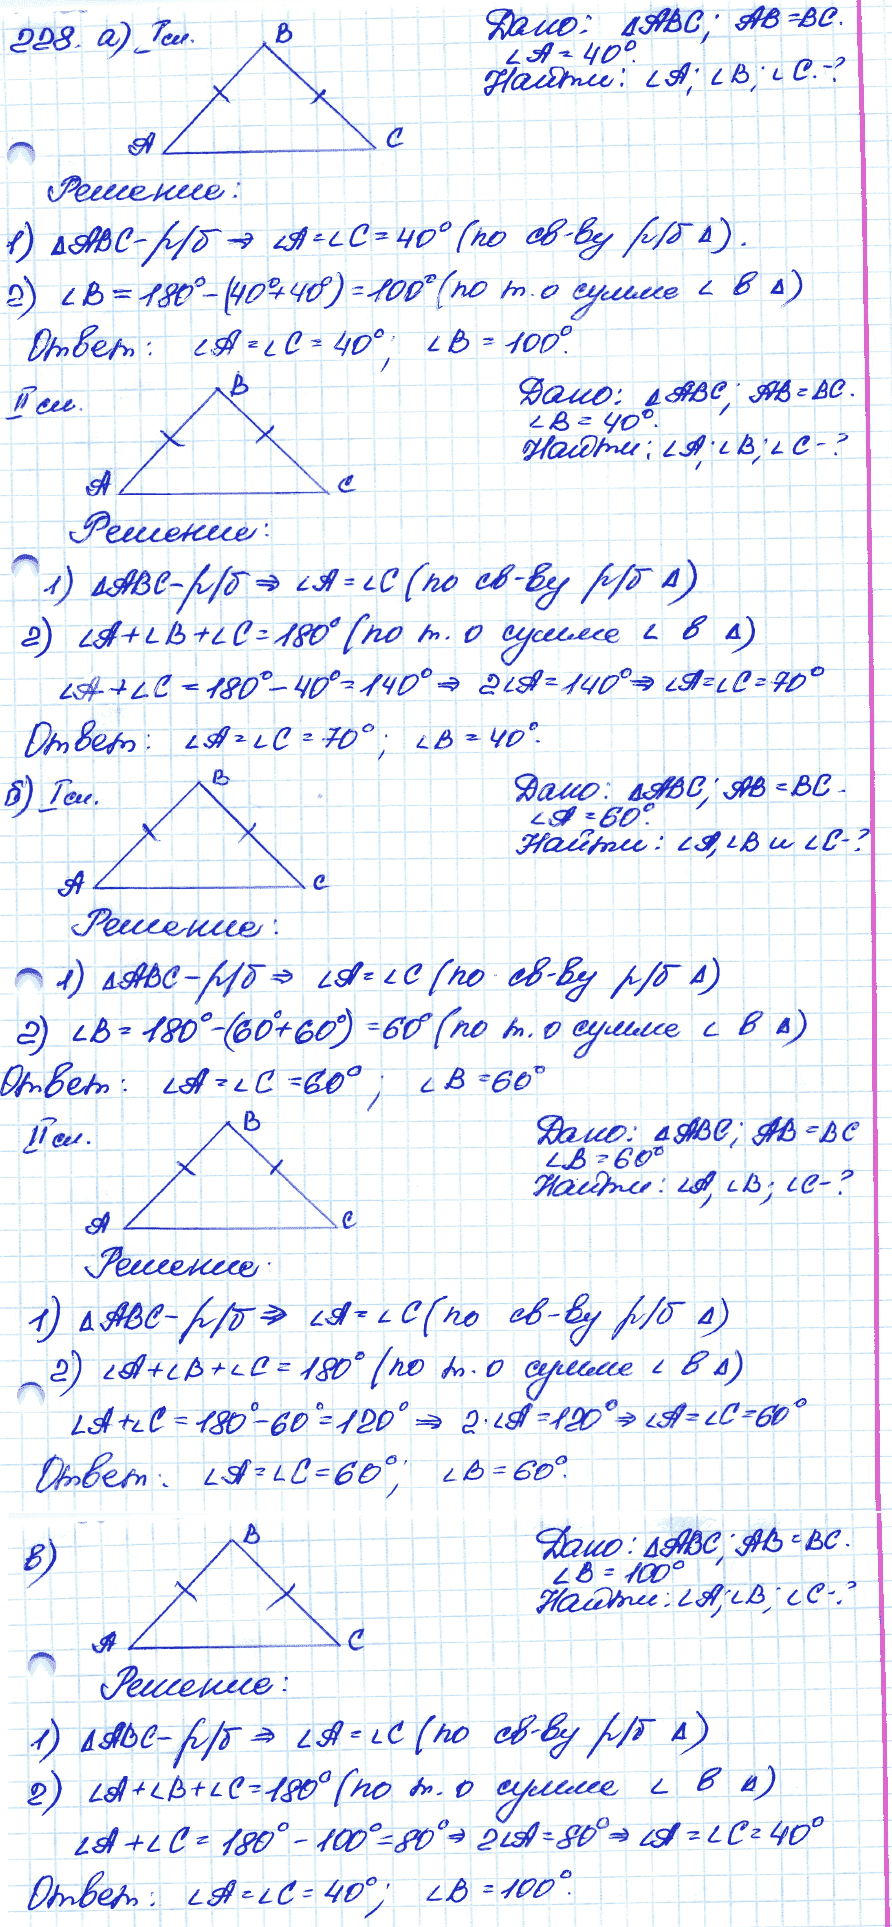 228. а) I сл.
B
A
C
Дано: ΔABC; AB=BC.
∠A = 40°.
Найти: ∠A; ∠B; ∠C.-?
Решение:
1) ΔABC-р/б ⇒ ∠A=∠C=40° (по св-ву р/б Δ).
2) ∠B = 180°-(40°+40°)=100° (по т. о сумме ∠ в Δ)
Ответ: ∠A=∠C=40°; ∠B=100°.
II сл.
B
A
C
Дано: ΔABC; AB=BC.
∠B = 40°.
Найти: ∠A; ∠B; ∠C-?
Решение:
1) ΔABC-р/б ⇒ ∠A=∠C (по св-ву р/б Δ)
2) ∠A+∠B+∠C=180° (по т. о сумме ∠ в Δ)
∠A+∠C=180°-40°=140° ⇒ 2∠A=140° ⇒ ∠A=∠C=70°
Ответ: ∠A=∠C=70°; ∠B=40°.
б) I сл.
B
A
C
Дано: ΔABC; AB=BC.
∠A=60°.
Найти: ∠A, ∠B и ∠C-?
Решение:
1) ΔABC-р/б ⇒ ∠A=∠C (по св-ву р/б Δ)
2) ∠B=180°-(60°+60°)=60° (по т. о сумме ∠ в Δ)
Ответ: ∠A=∠C=60°; ∠B=60°
II сл.
B
A
C
Дано: ΔABC; AB=BC
∠B=60°
Найти: ∠A; ∠B; ∠C-?
Решение.
1) ΔABC-р/б ⇒ ∠A=∠C (по св-ву р/б Δ)
2) ∠A+∠B+∠C=180° (по т. о сумме ∠ в Δ)
∠A+∠C=180°-60°=120° ⇒ 2·∠A=120° ⇒ ∠A=∠C=60°
Ответ: ∠A=∠C=60°; ∠B=60°.
в)
B
A
C
Дано: ΔABC; AB=BC.
∠B=100°
Найти: ∠A; ∠B; ∠C-?
Решение:
1) ΔABC-р/б ⇒ ∠A=∠C (по св-ву р/б Δ)
2) ∠A+∠B+∠C=180° (по т. о сумме ∠ в Δ)
∠A+∠C=180°-100°=80° ⇒ 2∠A=80° ⇒ ∠A=∠C=40°
Ответ: ∠A=∠C=40°; ∠B=100°.